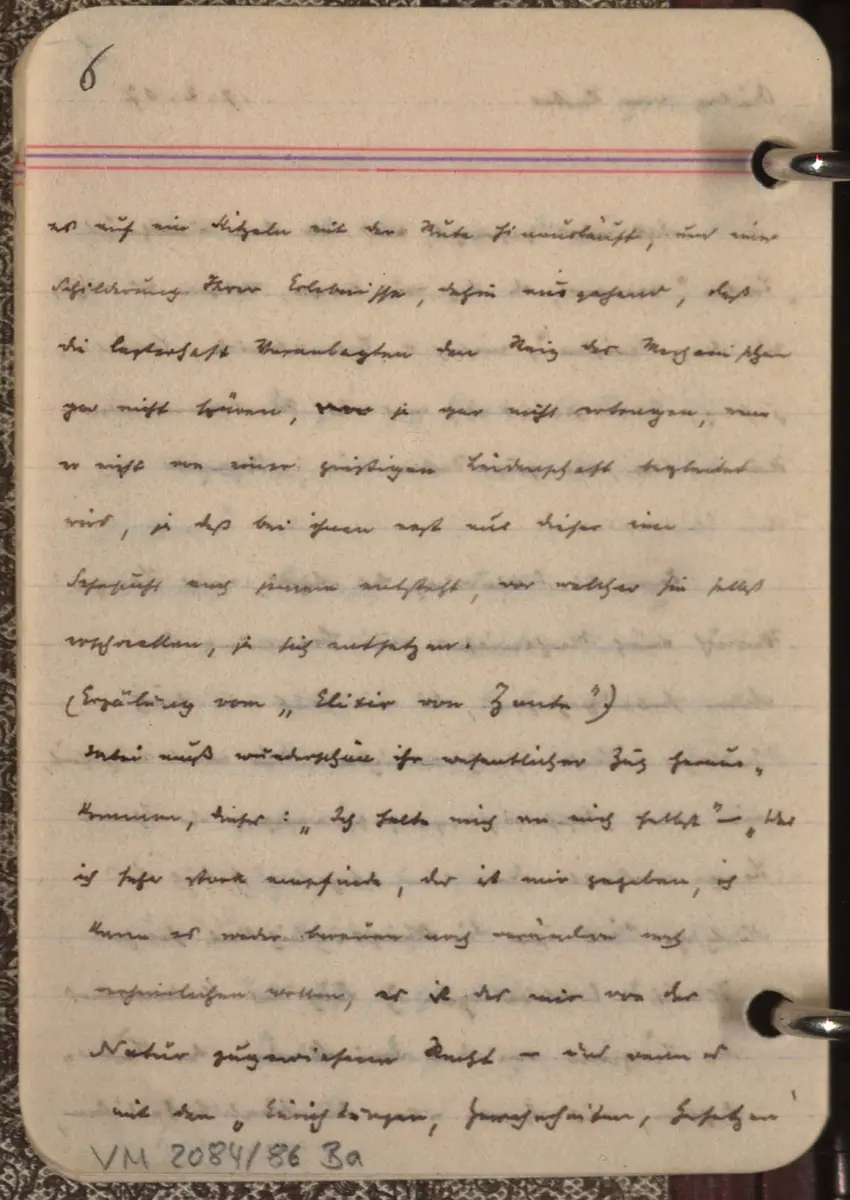 6
es auf ein Kitzeln mit der Rute hinausläuft, und einer
Schilderung Ihrer Erlebnisse, dahin ausgehend, daß
die lasterhaft Veranlagten den Reiz des Mechanischen
gar nicht spüren, ja gar nicht ertragen, wenn
er nicht von einer geistigen Leidenschaft begleitet
wird, ja daß bei ihnen erst aus dieser eine
Sehnsucht nach jenem entsteht, vor welcher sie selbst
erschrecken, ja sich entsetzen.
(Erzälung vom „Elixir von Zante")
Dabei muß wunderschön ihr wesentlicher Zug heraus-
kommen, dieser: „Ich halte mich an mich selbst" – „Was
ich sehr stark empfinde, das ist mir gegeben, ich
kann es weder bereuen noch verändern noch
verheimlichen wollen, es ist das mir von der
Natur zugewiesene Recht – und wenn es
mit den „Einrichtungen, Gewohnheiten, Gesetzen"
VM 2084/86 Ba